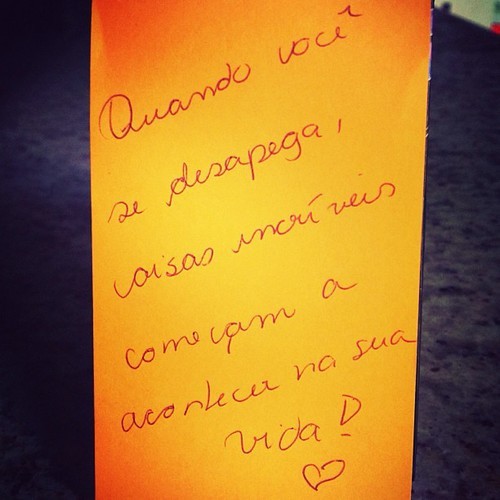 Quando você
se desapega,
coisas incríveis
começam a
acontecer na sua
vida!